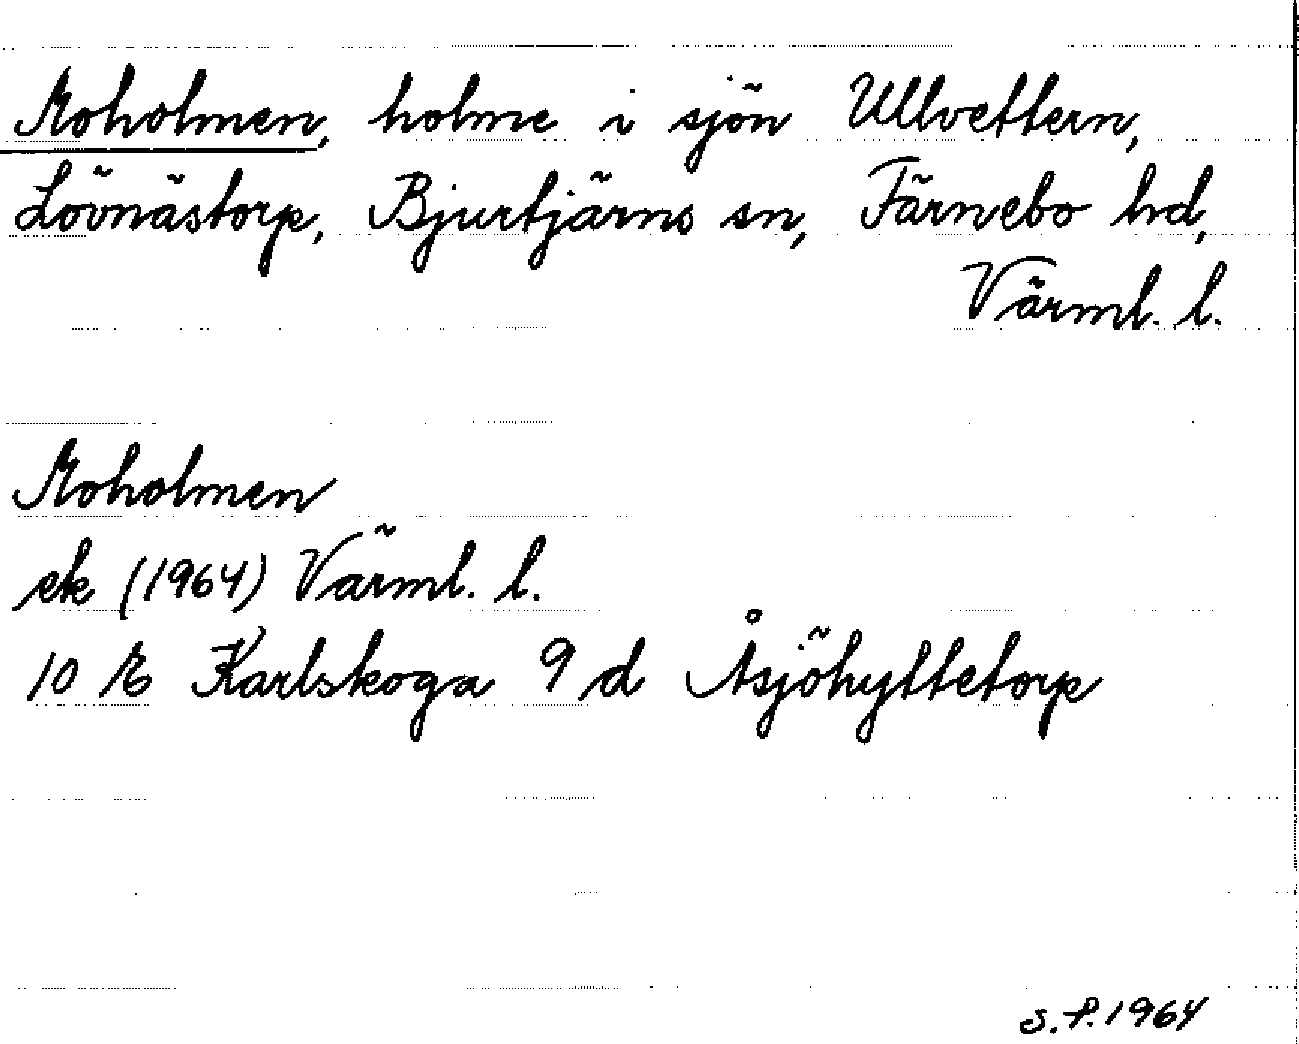 Moholmen, holme i sjön Ullvettern,
Lövnästorp, Bjurtjärns sn, Färnebo hd,
Värml. l.
Moholmen
ek (1964) Värml. l.
10 E Karlskoga 9 d Åsjöhyttetorp
S.F. 1964